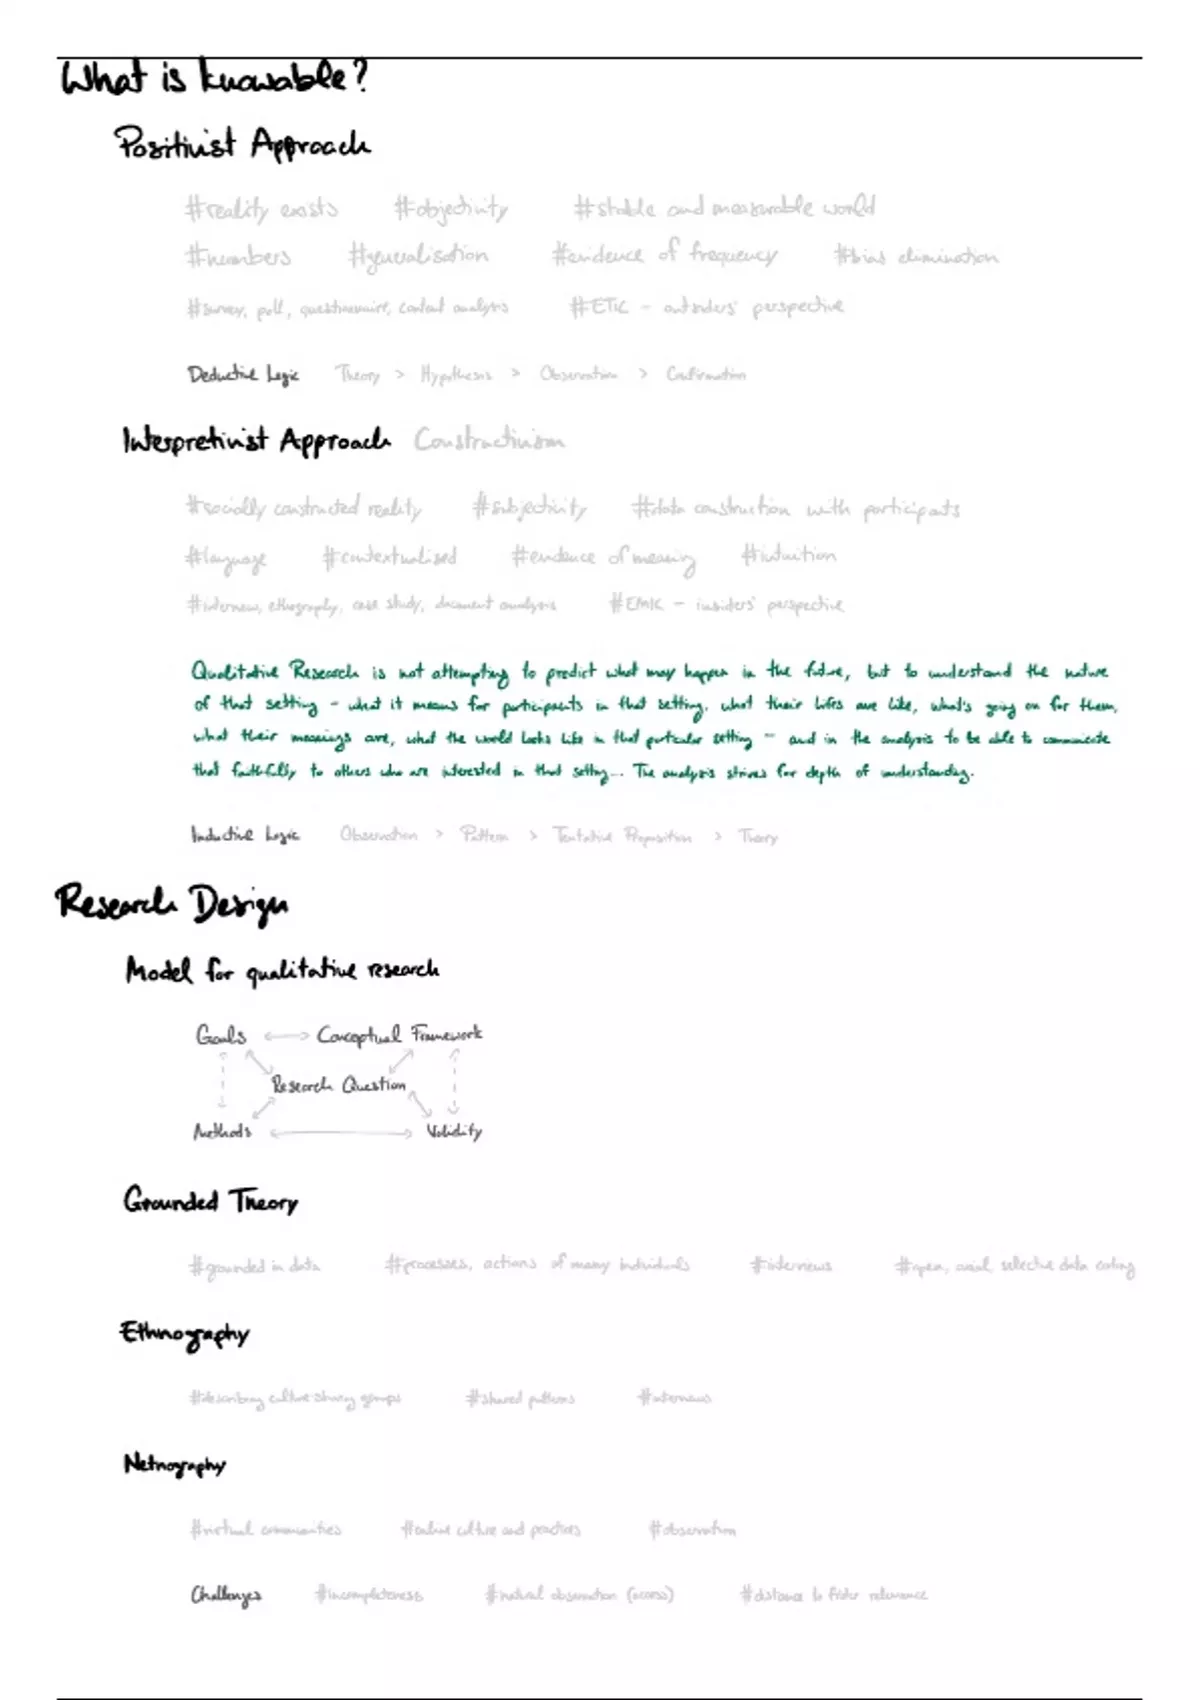 What is knowable?
Positivist Approach
#reality exists #objectivity #stable and measurable world
#numbers #generalisation #evidence of frequency #bias elimination
#survey, poll, questionnaire, content analysis #ETIC - outsiders' perspective
Deductive Logic Theory > Hypothesis > Observation > Confirmation
Interpretivist Approach Constructivism
#socially constructed reality #subjectivity #data construction with participants
#language #contextualised #evidence of meaning #intuition
#interview, ethography, case study, document analysis #EMIC - insiders' perspective
Qualitative Research is not attempting to predict what may happen in the future, but to understand the nature
of that setting - what it means for participants in that setting, what their lifes are like, what's going on for them,
what their meanings are, what the world looks like in that particular setting - and in the analysis to be able to communicate
that faithfully to others who are interested in that setting... The analysis strives for depth of understanding.
Inductive Logic Observation > Pattern > Tentative Proposition > Theory
Research Design
Model for qualitative research
Goals Conceptual Framework
Research Question
Methods Validity
Grounded Theory
#grounded in data #processes, actions of many individuals #interviews #open, axial, selective data coding
Ethnography
#describing culture-sharing groups #shared patterns #interviews
Netnography
#virtual communities #online culture and practices #observation
Challenges #incompleteness #natural observation (access) #distance to relevance